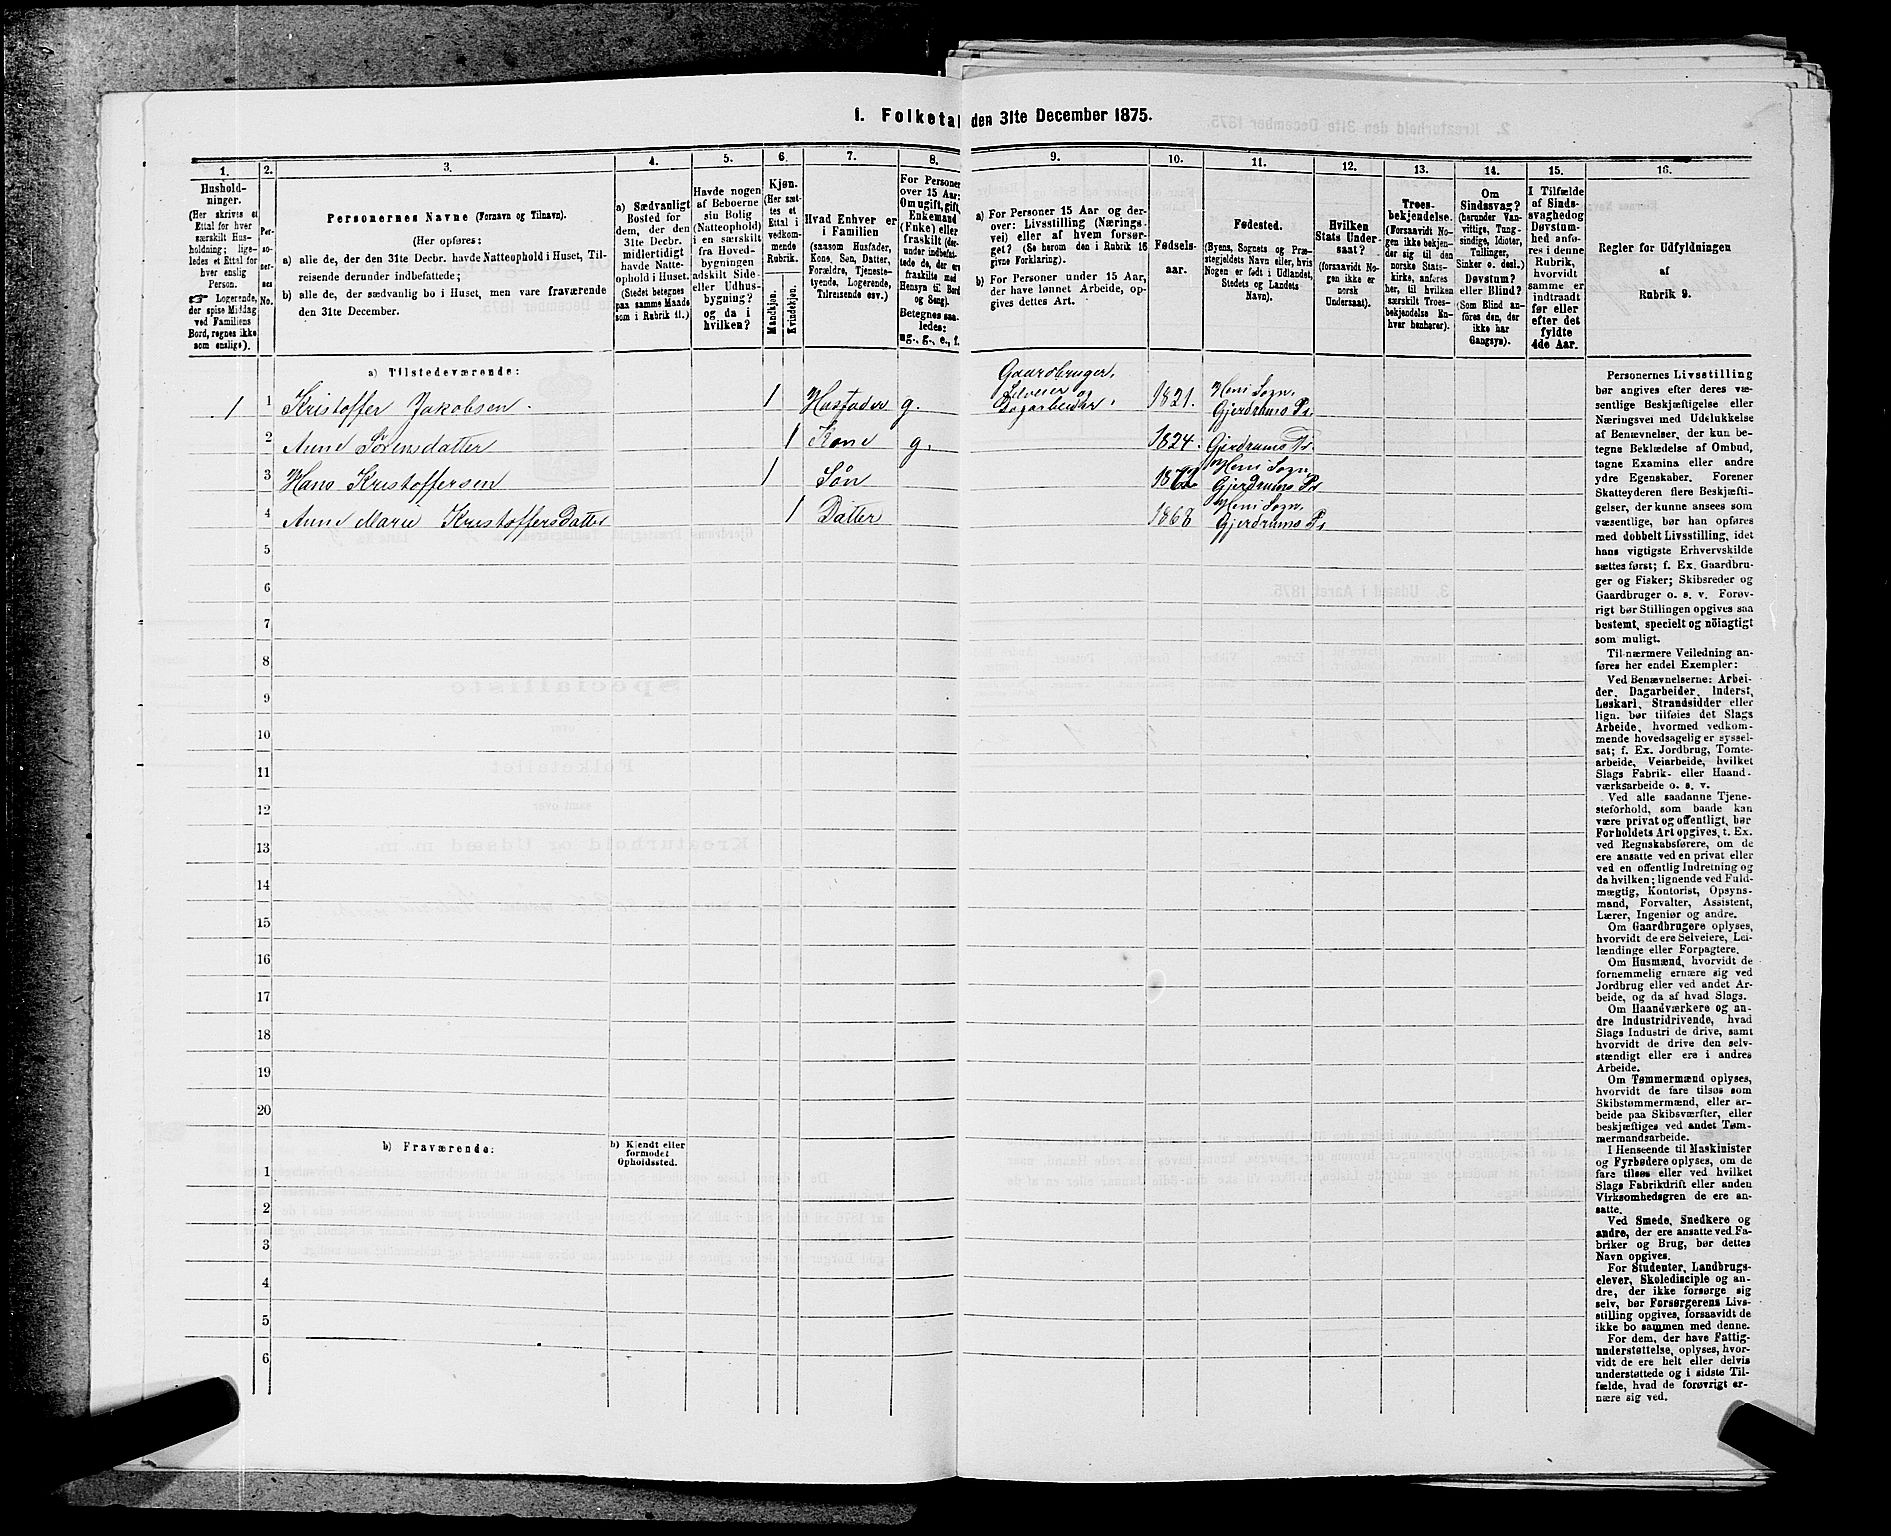 1. Folketal den 31te December 1875.
1. 2. 3. 4. 5. 6. 7. 8. 9. 10. 11. 12. 13. 14. 15. 16.
Hushold-
ninger.
(Her skrives et
Ettal for hver
særskilt Hus-
holdning; lige-
ledes et Ettal for
hver enslig
Person.
☞ Logerende,
der spise Middag
ved Familiens
Bord, regnes ikke
som enslige).
Per-
so-
ner-
nes
No.
Personernes Navne (Fornavn og Tilnavn).
(Her opføres:
a) alle de, der den 31te Decbr. havde Natteophold i Huset, Til-
reisende derunder indbefattede;
b) alle de, der sædvanlig bo i Huset, men vare fraværende
den 31te December.
a) Sædvanligt
Bosted for
dem, der den
31te Decbr.
midlertidigt
havde Natte-
ophold i Huset.
(Stedet betegnes
paa samme Maade
som i Rubrik 11.)
Havde nogen
af Beboerne
sin Bolig
(Natteophold)
i en særskilt
fra Hoved-
bygningen
adskilt Side-
eller Udhus-
bygning?
og da i
hvilken?
Kjøn.
(Her sæt-
tes et
Ettal i
vedkom-
mende
Rubrik.
Mandkjøn.
Kvindekjøn.
Hvad Enhver er
i Familien
(saasom Husfader,
Kone, Søn, Datter,
Forældre, Tjeneste-
tyende, Logerende,
Tilreisende osv.)
For Personer
over 15 Aar:
Om ugift, gift,
Enkemand
(Enke) eller
fraskilt (der-
under indbefat-
tede de, der ere
fraskilte med
Hensyn til Bord
og Seng).
Betegnes saa-
ledes:
ug., g., e., f.
a) For Personer 15 Aar og der-
over: Livsstilling (Nærings-
vei) eller af hvem forsør-
get? (Se herom den i Rubrik 16
givne Forklaring).
b) For Personer under 15 Aar,
der have lønnet Arbeide, op-
gives dettes Art.
Fødsels-
aar.
Fødested.
(Byens, Sognets og Præ-
stegjeldets Navn eller, hvis
Nogen er født i Udlandet,
Stedets og Landets
Navn).
Hvilken
Stats Under-
saat?
(forsaavidt No-
gen ikke er
norsk
Undersaat).
Troes-
bekjendelse.
(Forsaavidt No-
gen ikke bekjen-
der sig til den
norske Stats-
kirke, anføres
her, til hvilken
særskilt Troes-
bekjendelse En-
hver henhører).
Om
Sindssvag?
(herunder Van-
vittige, Tung-
sindige, Idioter,
Tullinger,
Sinker o. desl.)
Døvstum?
eller Blind?
(Som Blind an-
føres den, der
ikke har
Gangsyn).
I Tilfælde
af Sinds-
svaghed og
Døvstum-
hed anfø-
res i denne
Rubrik,
hvorvidt
samme er
indtraadt
før eller
efter det
fyldte
4de Aar.
Regler for Udfyldningen
af
Rubrik 9.
a) Tilstedeværende:
1 1 Kristoffer Jakobsen. 1 Husfader g. Gaardbruger, Selveier og Dagarbeider. 1821. Heni Sogn, Gjerdrums Ps
2 Anne Sørensdatter 1 Kone g. 1824. Gjerdrums Ps.
3 Hans Kristoffersen 1 Søn Heni Sogn, Gjerdrums Ps
4 Anne Marie KristoffersDatter 1 Datter 1868 Heni Sogn, Gjerdrums Ps
5
6
7
8
9
10
11
12
13
14
15
16
17
18
19
20
b) Fraværende:
b) Kjendt eller
formodet
Opholdssted.
1
2
3
4
5
6
Personernes Livsstilling
bør angives efter deres væ-
sentlige Beskjæftigelse eller
Næringsvei med Udelukkelse
af Benævnelser, der kun be-
tegne Beklædelse af Ombud,
tagne Examina eller andre
ydre Egenskaber. Forener
Skatteyderen flere Beskjæfti-
gelser, der kunne ansees som
væsentlige, bør han opføres
med dobbelt Livsstilling, idet
hans vigtigste Erhvervskilde
sættes først; f. Ex. Gaardbru-
ger og Fisker; Skibsreder og
Gaardbruger o. s. v. Forøv-
rigt bør Stillingen opgives saa
bestemt, specielt og nöiagtigt
som muligt.
Til nærmere Veiledning an-
føres her endel Exempler:
Ved Benævnelserne: Arbei-
der, Dagarbeider, Inderst,
Løskarl, Strandsidder eller
lign. bør tilføies det Slags
Arbeide, hvormed vedkom-
mende hovedsagelig er syssel-
sat; f. Ex. Jordbrug, Tomte-
arbeide, Veiarbeide, hvilket
Slags Fabrik- eller Haand-
værksarbeide o. s. v.
Ved alle saadanne Tjene-
steforhold, som baade kan
være privat og offentligt, bør
Forholdets Art opgives, t. Ex.
ved Regnskabsførere, om de
ere ansatte ved en privat eller
ved en offentlig Indretning og
da hvilken; lignende ved Fuld-
mægtig, Kontorist, Opsyns-
mand, Forvalter, Assistent,
Lærer, Ingeniør og andre.
Om Gaardbrugere oplyses,
hvorvidt de ere Selveiere, Lei-
lændinge eller Forpagtere.
Om Husmænd, hvorvidt de
fornemmelig ernære sig ved
Jordbrug eller ved andet Ar-
beide, og da af hvad Slags.
Om Haandværkere og an-
dre Industridrivende, hvad
Slags Industri de drive, samt
hvorvidt de drive den selv-
stændigt eller ere i andres
Arbeide.
Om Tømmermænd oplyses,
hvorvidt de fare tilsøs som
Skibstømmermænd, eller ar-
beide paa Skibsværfter, eller
beskjæftiges ved andet Tøm-
mermandsarbeide.
I Henseende til Maskinister
og Fyrbødere oplyses, om de
fare tilsøs eller ved hvilket
Slags Fabrikdrift eller anden
Virksomhedsgren de ere an-
satte.
Ved Smede, Snedkere og
andre, der ere ansatte ved Fa-
briker og Brug, bør dettes
Navn opgives.
For Studenter, Landbrugs-
elever, Skoledisciple og an-
dre, der ikke forsørge sig
selv, bør Forsørgerens Livs-
stilling opgives, forsaavidt de
ikke bo sammen med denne.
For dem, der have Fattig-
understøttelse, oplyses, hvor-
vidt de ere helt eller delvis
understøttede og i sidste Til-
fælde, hvad de forøvrigt er-
nære sig ved.